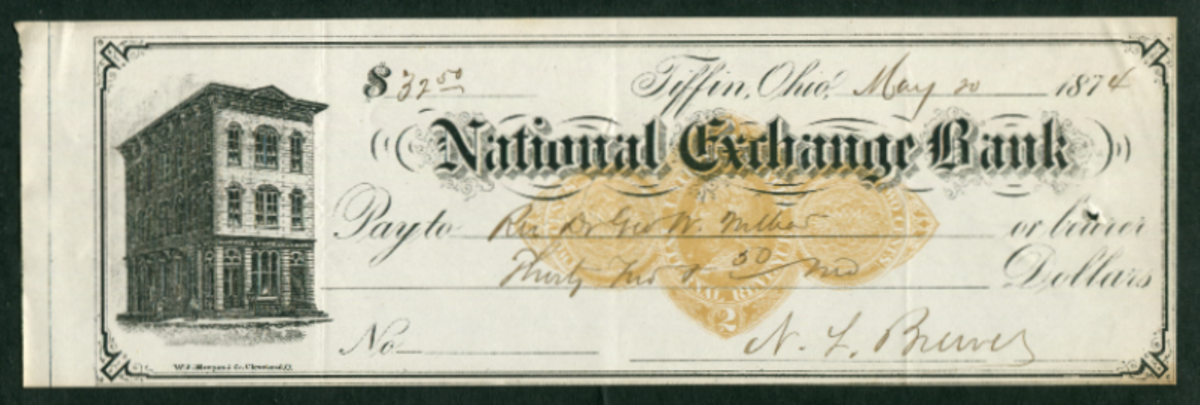 $ 32 50
Tiffin, Ohio, May 20 1874
National Exchange Bank
Pay to Rev Dr Geo W. or bearer
Thirty Two & 50 Dollars
2
No
N. L. Brewer
W. J. Morgan & Co. Cleveland, O.